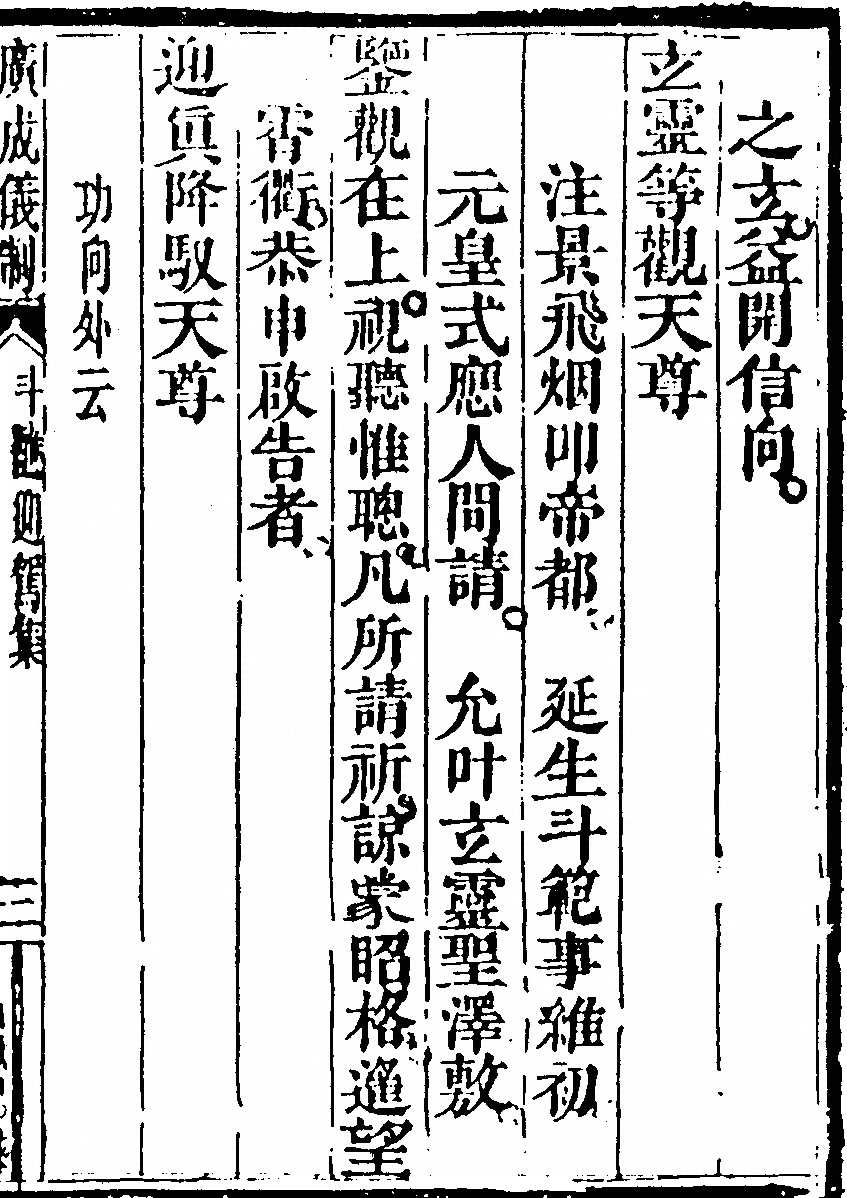 之玄益開信向。
玄靈等觀天尊
注景飛烟叩帝都、　延生斗範事維初
元皇式應人問請。　允叶玄靈聖澤敷
鑒觀在上。視聽惟聰凡所請祈諒蒙昭格遥望
霄衢恭申啟告者
迎眞降馭天尊
功向外云
廣成儀制　斗醮迎駕集　三